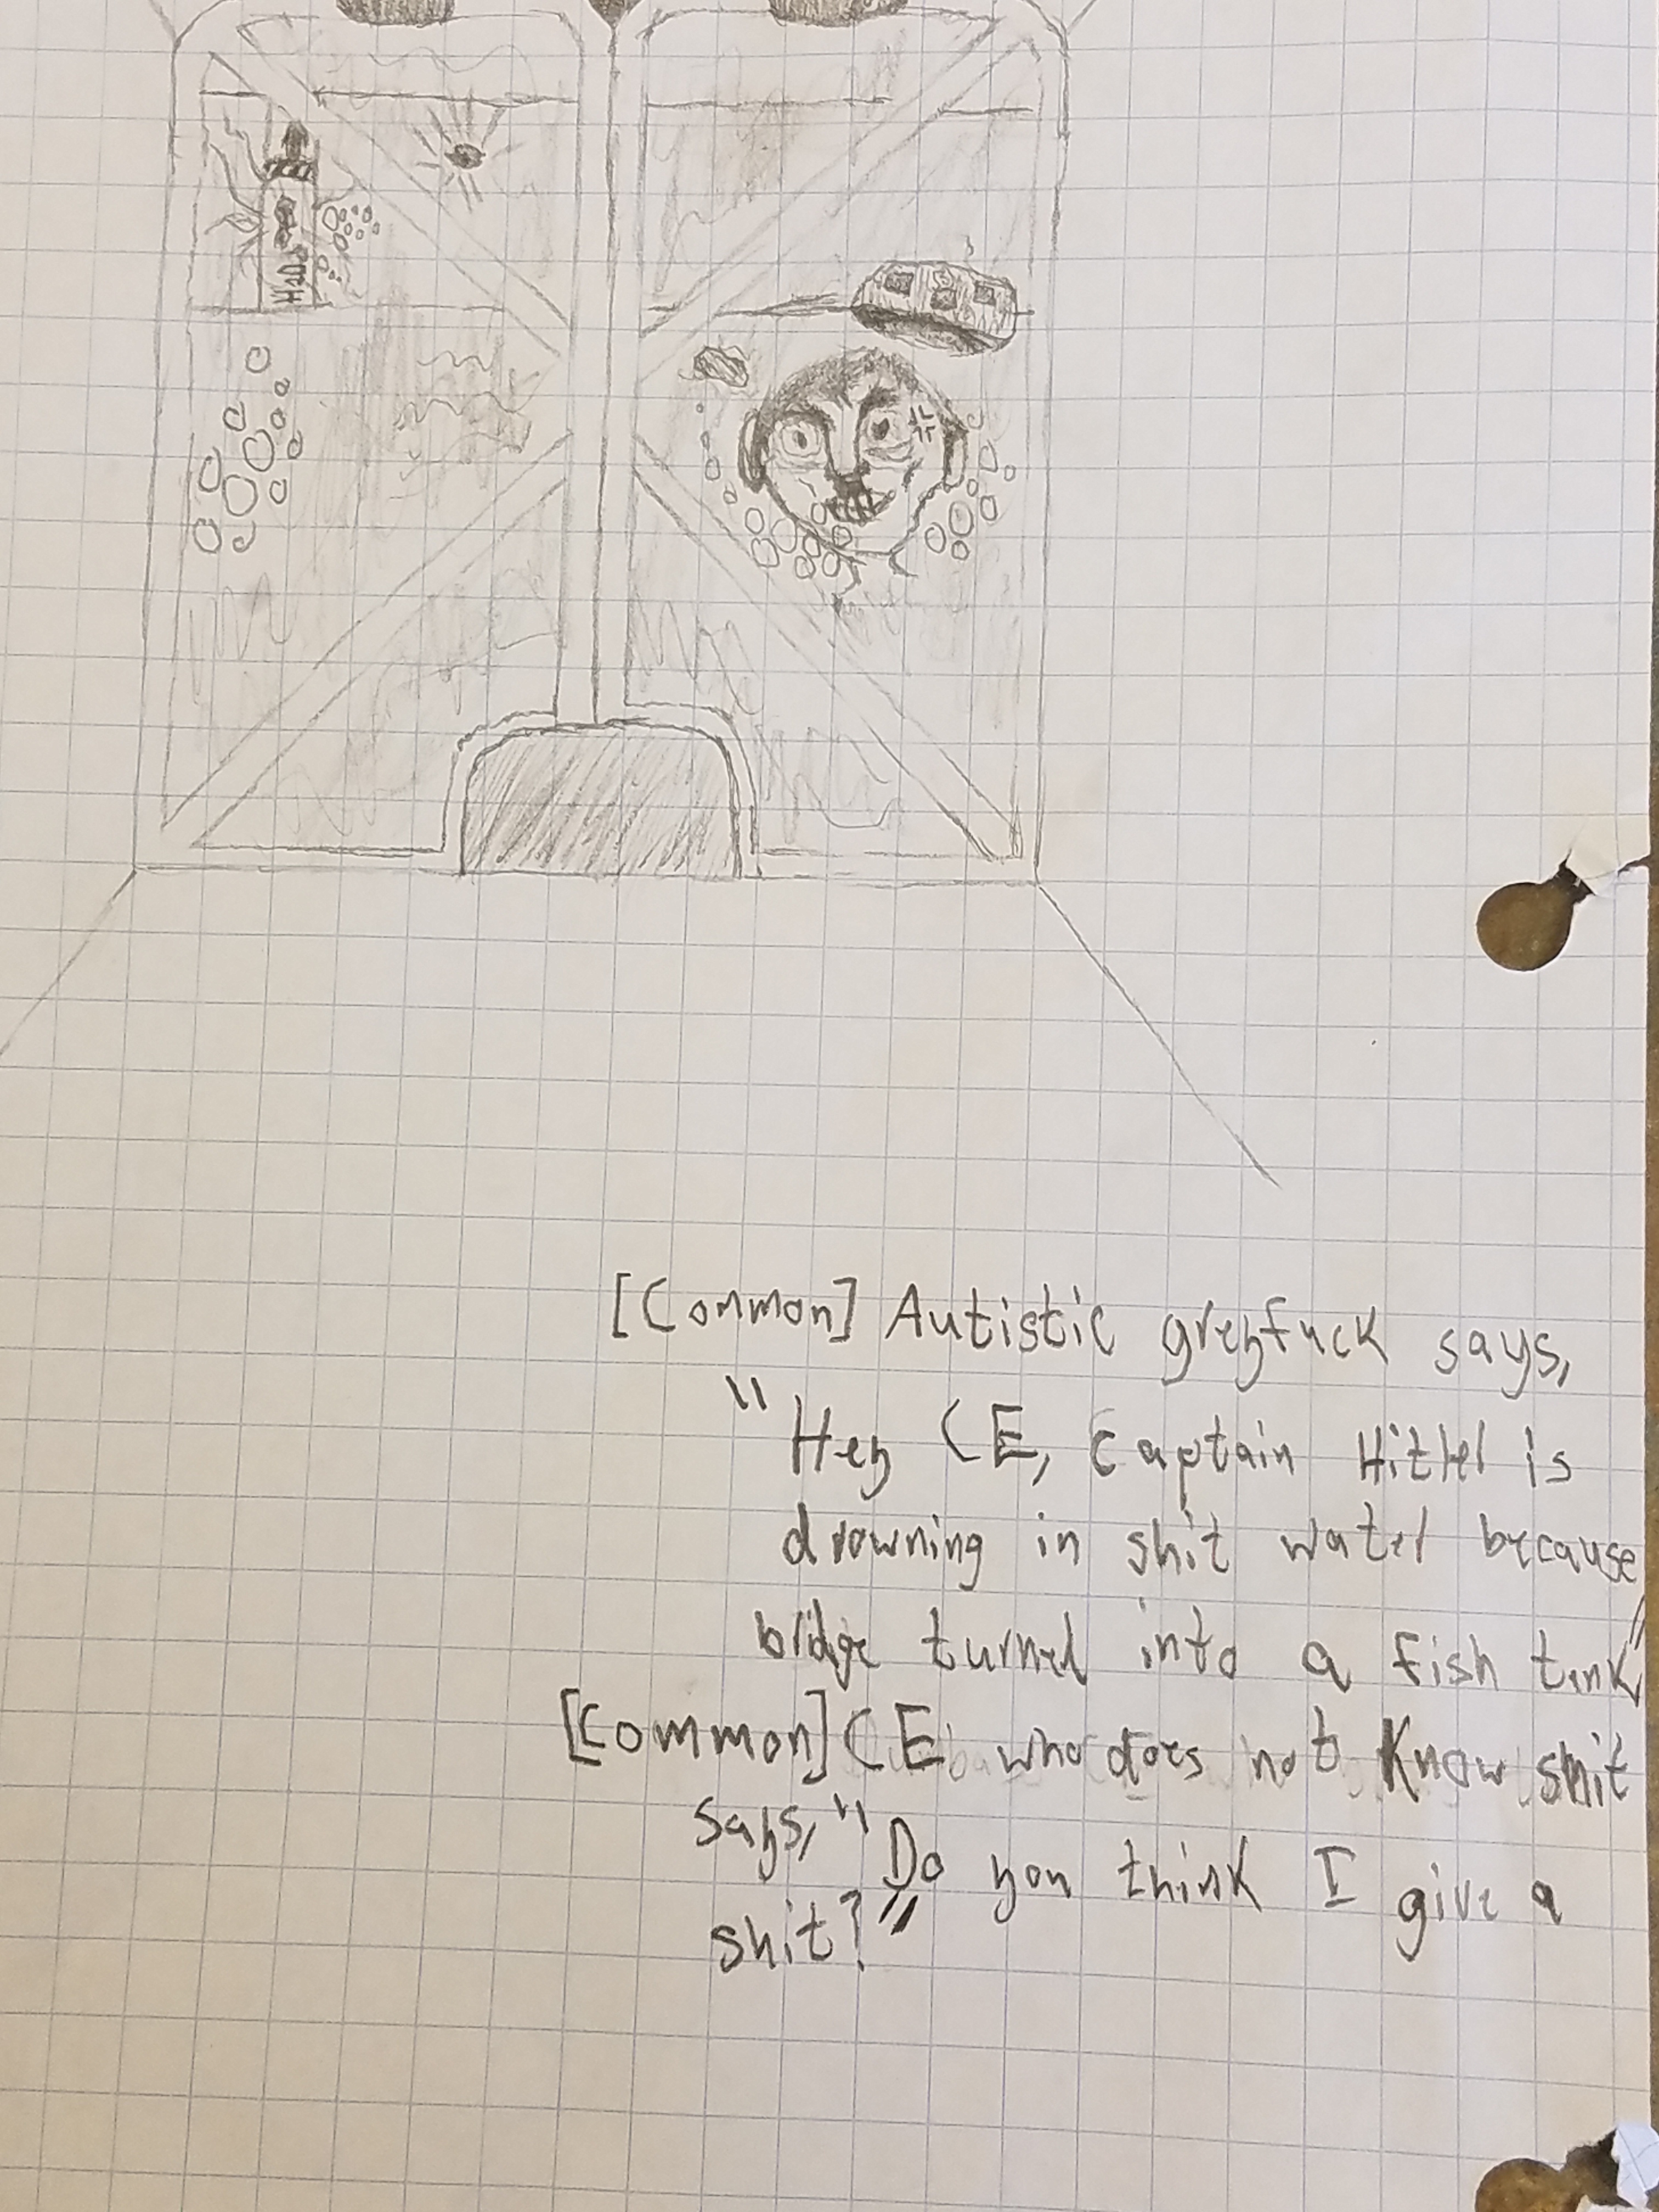 [Common] Autistic greyfuck says,
"Hey CE, Captain Hitler is
drowning in shit water because
bridge turned into a fish tank"
[Common] CE who does not know shit
says, "Do you think I give a
shit?"